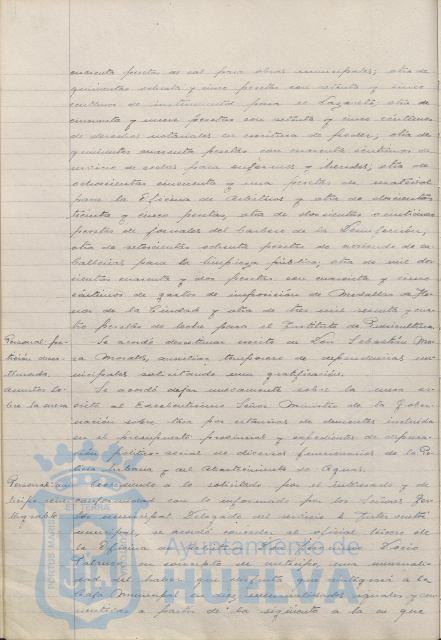 cuarenta pesetas de cal para obras municipales; otra de
quinientas ochenta y cinco pesetas con setenta y cinco
céntimos de instrumental para el Lazareto, otra de
cincuenta y nueve pesetas con setenta y cinco céntimos
de derechos notariales en escritura de poder, otra de
quinientas cuarenta pesetas con cuarenta céntimos de
servicio de coches para enfermos y heridos; otra de
ochocientas cincuenta y una pesetas de material
para la Oficina de Arbitrios y otra de doscientas
treinta y cinco pesetas, otra de doscientas veintiuna
pesetas de jornales del Barbero de la
otra de setecientas ochenta pesetas de arriendo de ca-
ballerías para la limpieza pública; otra de mil dos
cientas cuarenta y dos pesetas con cuarenta y cinco
céntimos de gastos de imposición de Medallas de Ho-
nor de la Ciudad y otra de tres mil sesenta y cua-
tro pesetas de leche para el Instituto de Puericultura.
Personal: pe-
tición deses-
timada.
Se acordó desestimar escrito de Don Sebastián Mo
ra Morales, auxiliar temporero de dependencias mu-
nicipales solicitando una gratificación.
Asuntos so-
bre la mesa
Se acordó dejar nuevamente sobre la mesa es-
crito al Excelentísimo Señor Ministro de la Gober-
nación sobre por estancias de dementes incluida
en el presupuesto provincial y expedientes de depura-
ción político-social de diversos funcionarios de la Po-
licía Urbana y del Abastecimiento de Aguas.
Personal: an-
ticipo rein-
tegrable
Accediendo a lo solicitado por el interesado y de
conformidad con lo informado por los Señores
municipal Delegado del servicio e Interventor
municipal, se acordó conceder al oficial de
la Oficina de
en concepto de anticipo, una mensuali-
dad del haber que disfruta que reintegrará a la
Caja Municipal en diez mensualidades iguales y con-
secutivas a partir de la siguiente a la en que
PORTUS MARIS
ET TERRAE
Ayuntamiento de
HUELVA